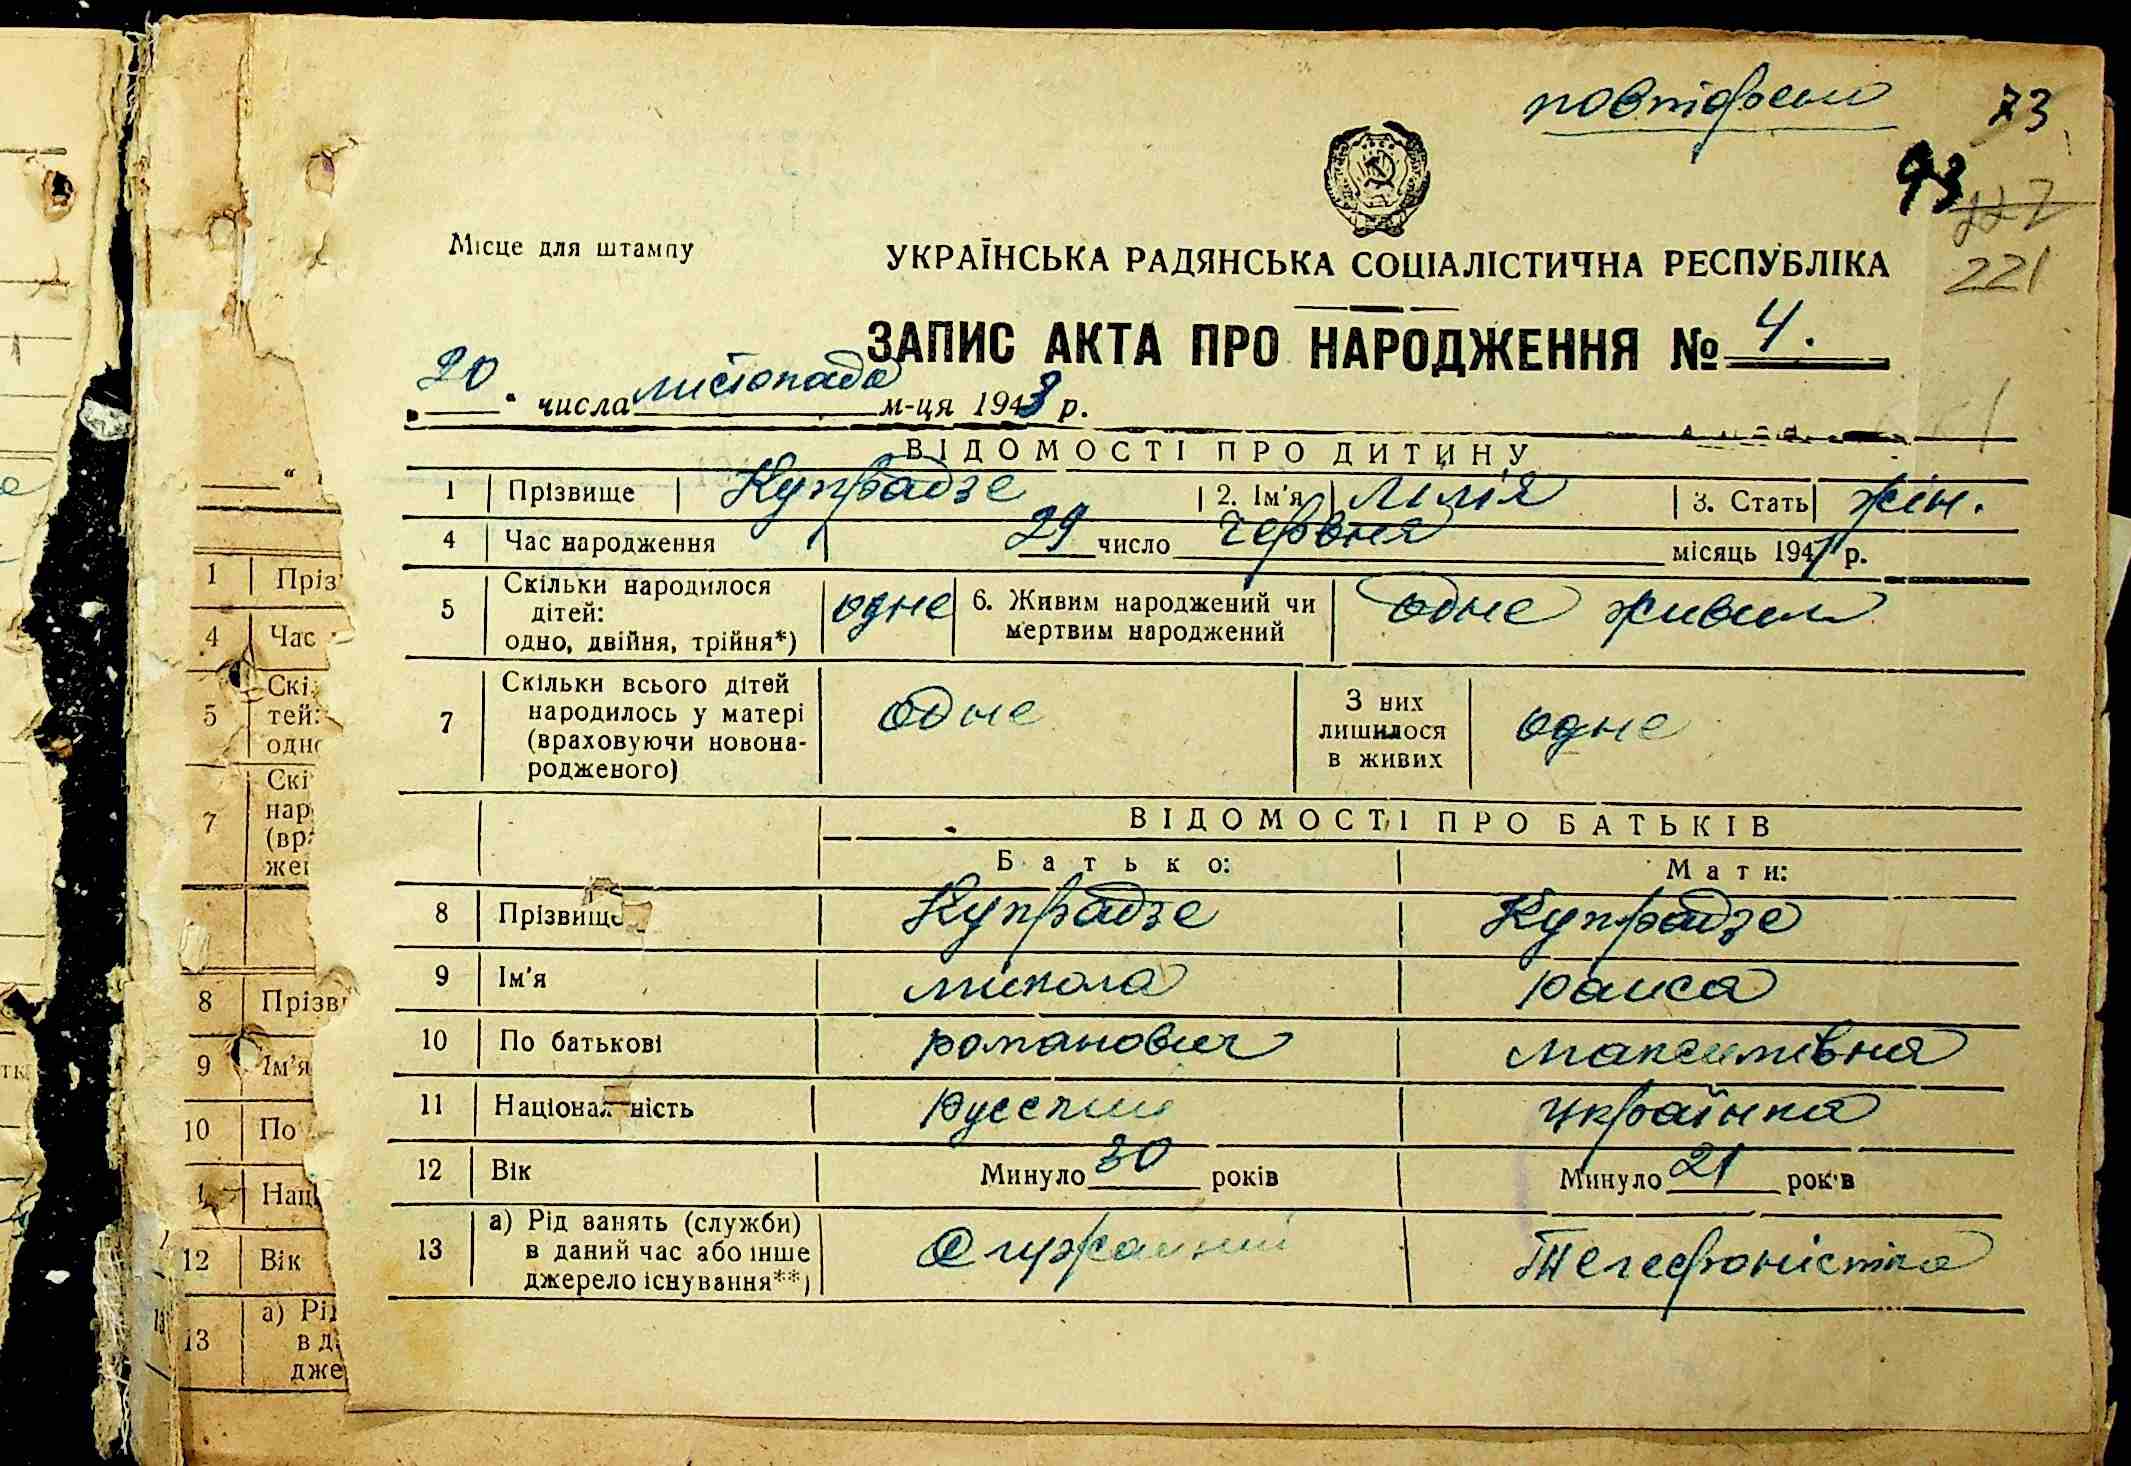 повторено 73
93
227
221
Місце для штампу
УКРАЇНСЬКА РАДЯНСЬКА СОЦІАЛІСТИЧНА РЕСПУБЛІКА
ЗАПИС АКТА ПРО НАРОДЖЕННЯ № 4.
„20“ числа листопада м-ця 1943 р.
ВІДОМОСТІ ПРО ДИТИНУ
1 Прізвище Купрадзе 2. Ім'я Лілія 3. Стать жін.
4 Час народження 29 число червня місяць 1941 р.
5 Скільки народилося дітей: одно, двійня, трійня*) одне 6. Живим народжений чи мертвим народжений одне живим
7 Скільки всього дітей народилось у матері (враховуючи новонародженого) одне З них лишилося в живих одне
ВІДОМОСТІ ПРО БАТЬКІВ
Батько: Мати:
8 Прізвище Купрадзе Купрадзе
9 Ім'я Микола Раиса
10 По батькові Романович Максимівна
11 Національність Русский Українка
12 Вік Минуло 30 років Минуло 21 років
13 а) Рід занять (служби) в даний час або інше джерело існування**) Служащий Телефоністка
1 Пріз
4 Час
5 Скі
тей:
одно
7 Скі
нар
(вра
жен
8 Прізв
9 Ім'я
10 По
Наці
12 Вік
13 а) Рід
в д
дже